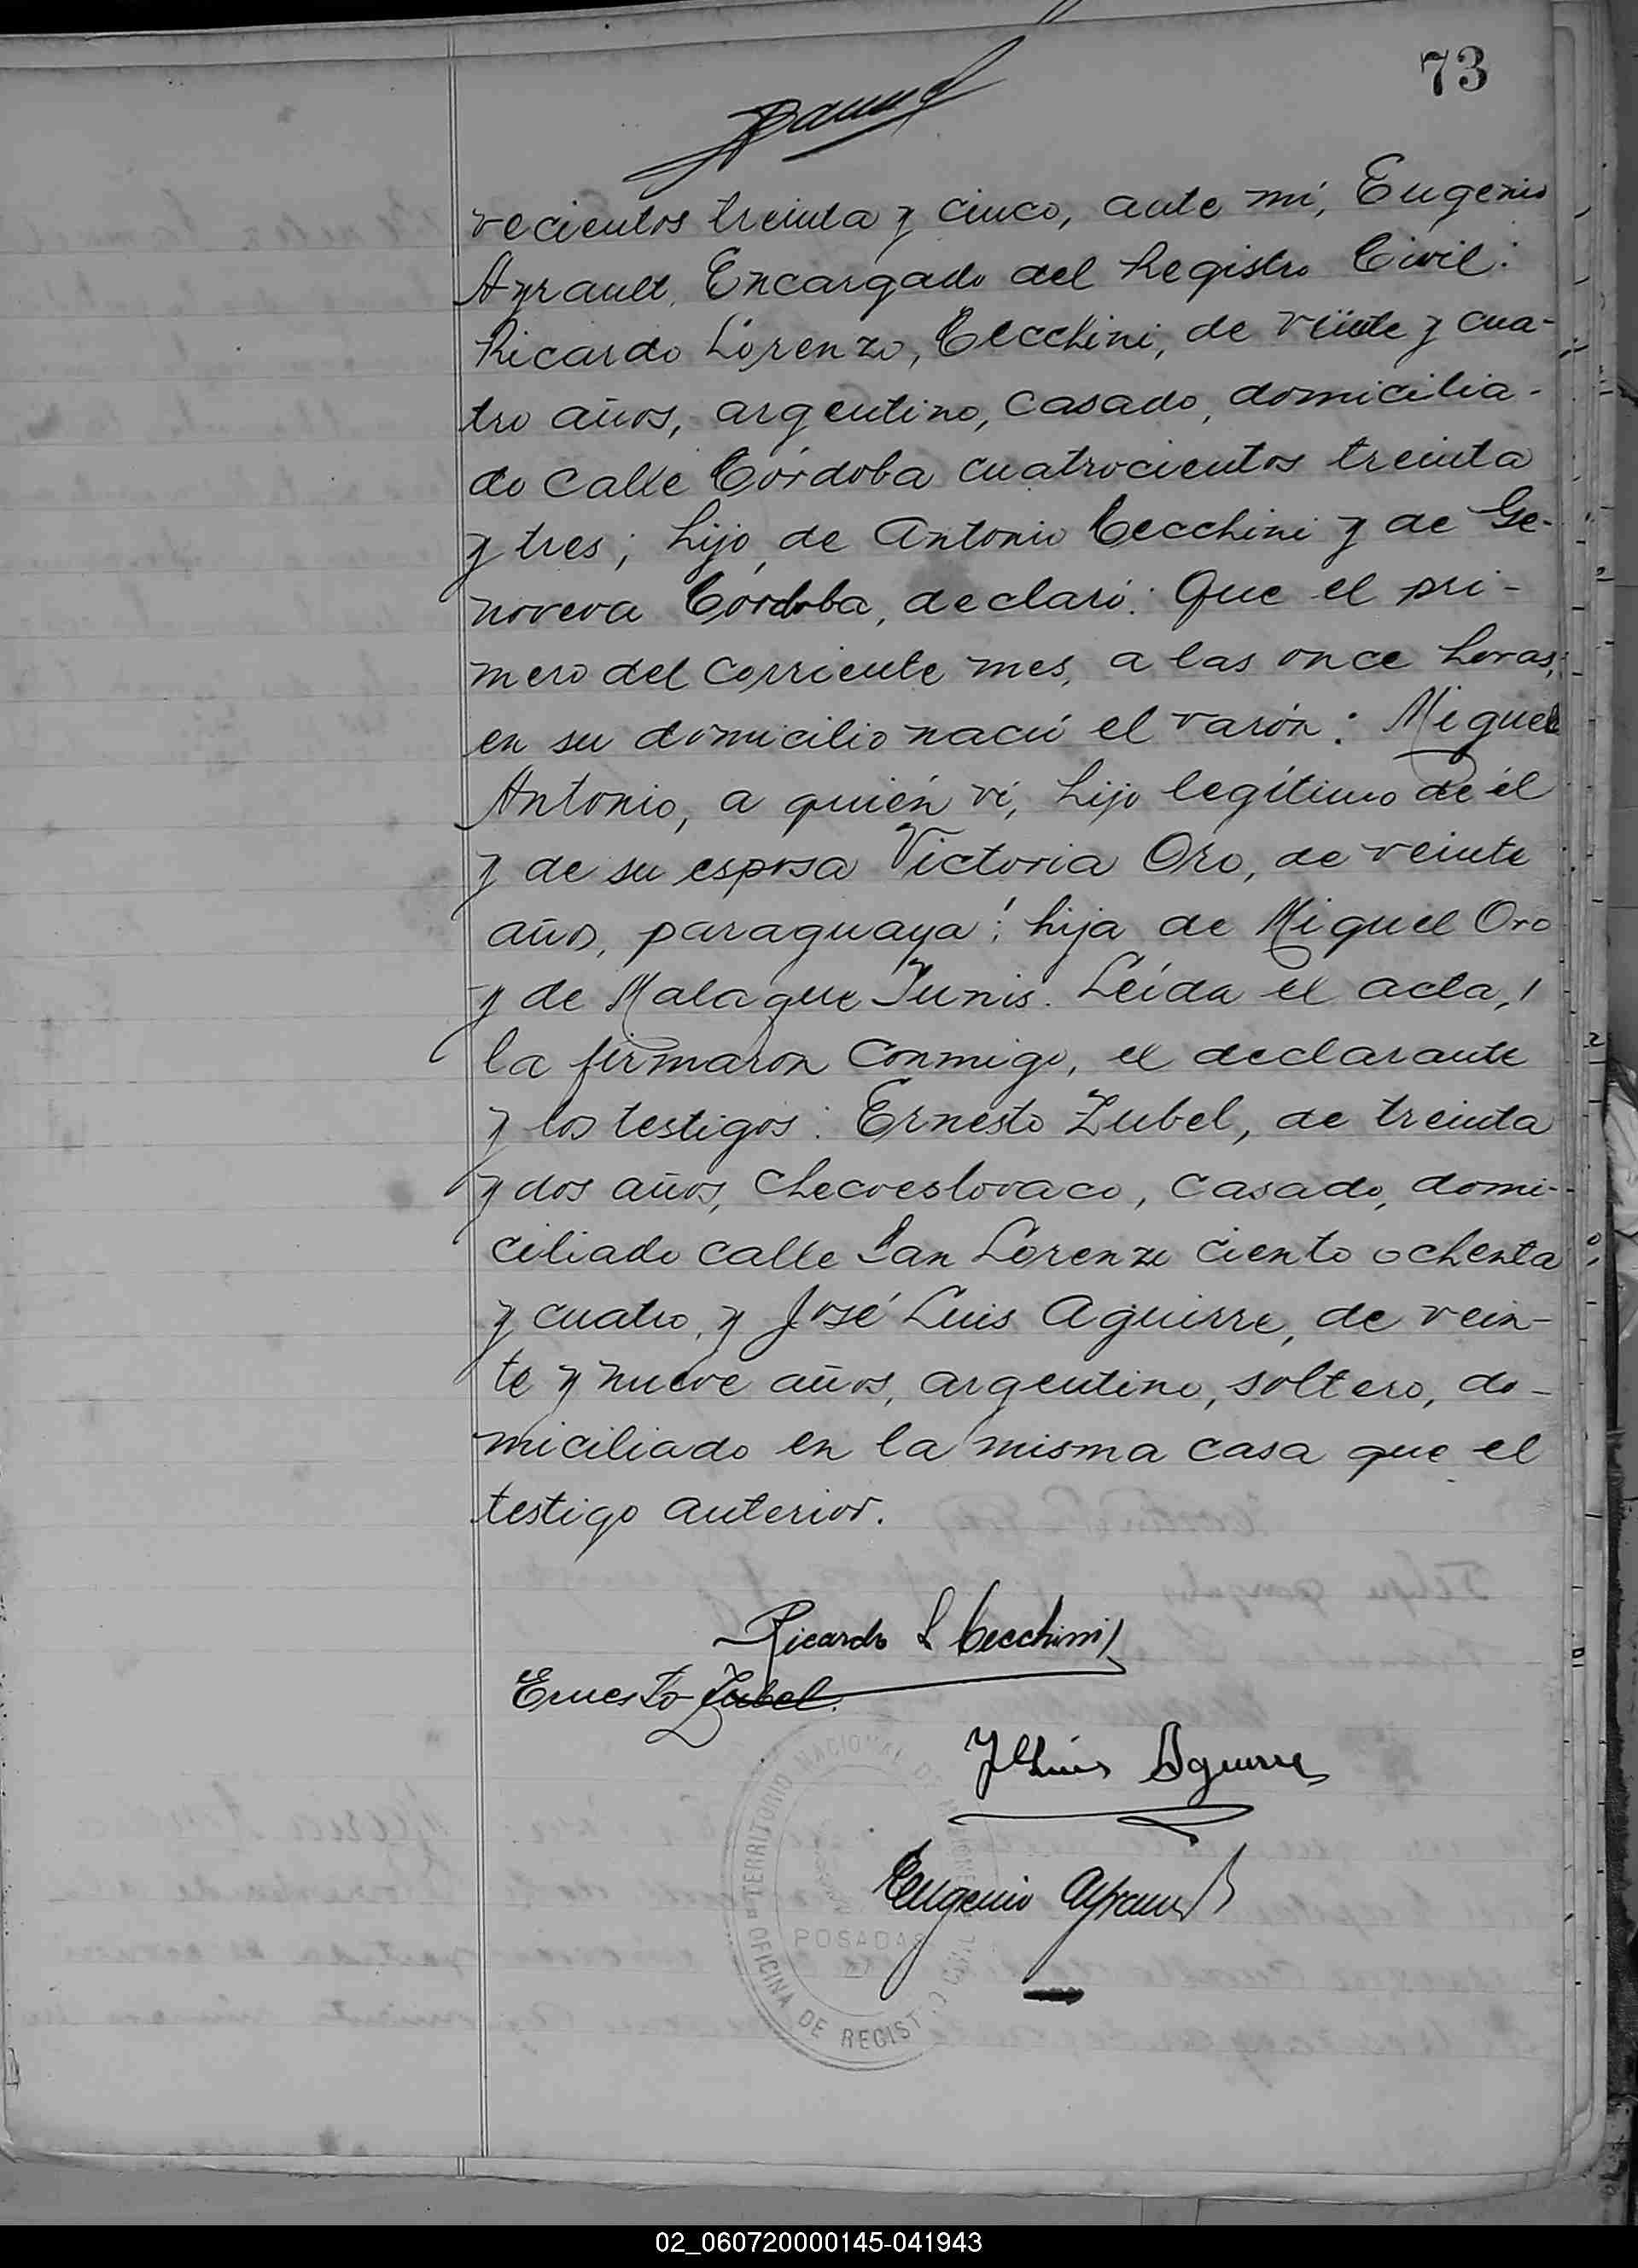 73
vecientos treinta y cinco, ante mí, Eugenio
Ayrault, Encargado del Registro Civil:
Ricardo Lorenzo, Cecchini, de veinte y cua-
tro años, argentino, casado, domicilia-
do calle Córdoba cuatrocientos treinta
y tres; hijo de Antonio Cecchini y de Ge-
noveva Córdoba, declaró: Que el pri-
mero del corriente mes, a las once horas,
en su domicilio nació el varón: Miguel
Antonio, a quién ví, hijo legítimo de él
y de su esposa Victoria Oro, de veinte
años, paraguaya; hija de Miguel Oro
y de Malaque Junis. Leída el acta,
la firmaron conmigo, el declarante
y los testigos: Ernesto Zubel, de treinta
y dos años, checoeslovaco, casado, domi-
ciliado calle San Lorenzo ciento ochenta
y cuatro, y José Luis Aguirre, de vein-
te y nueve años, argentino, soltero, do-
miciliado en la misma casa que el
testigo anterior.
Ricardo L Cecchini
Ernesto Zubel
J Luis Aguirre
Eugenio Ayrault
TERRITORIO NACIONAL DE MISIONES
POSADAS
OFICINA DE REGISTRO CIVIL
02_060720000145-041943